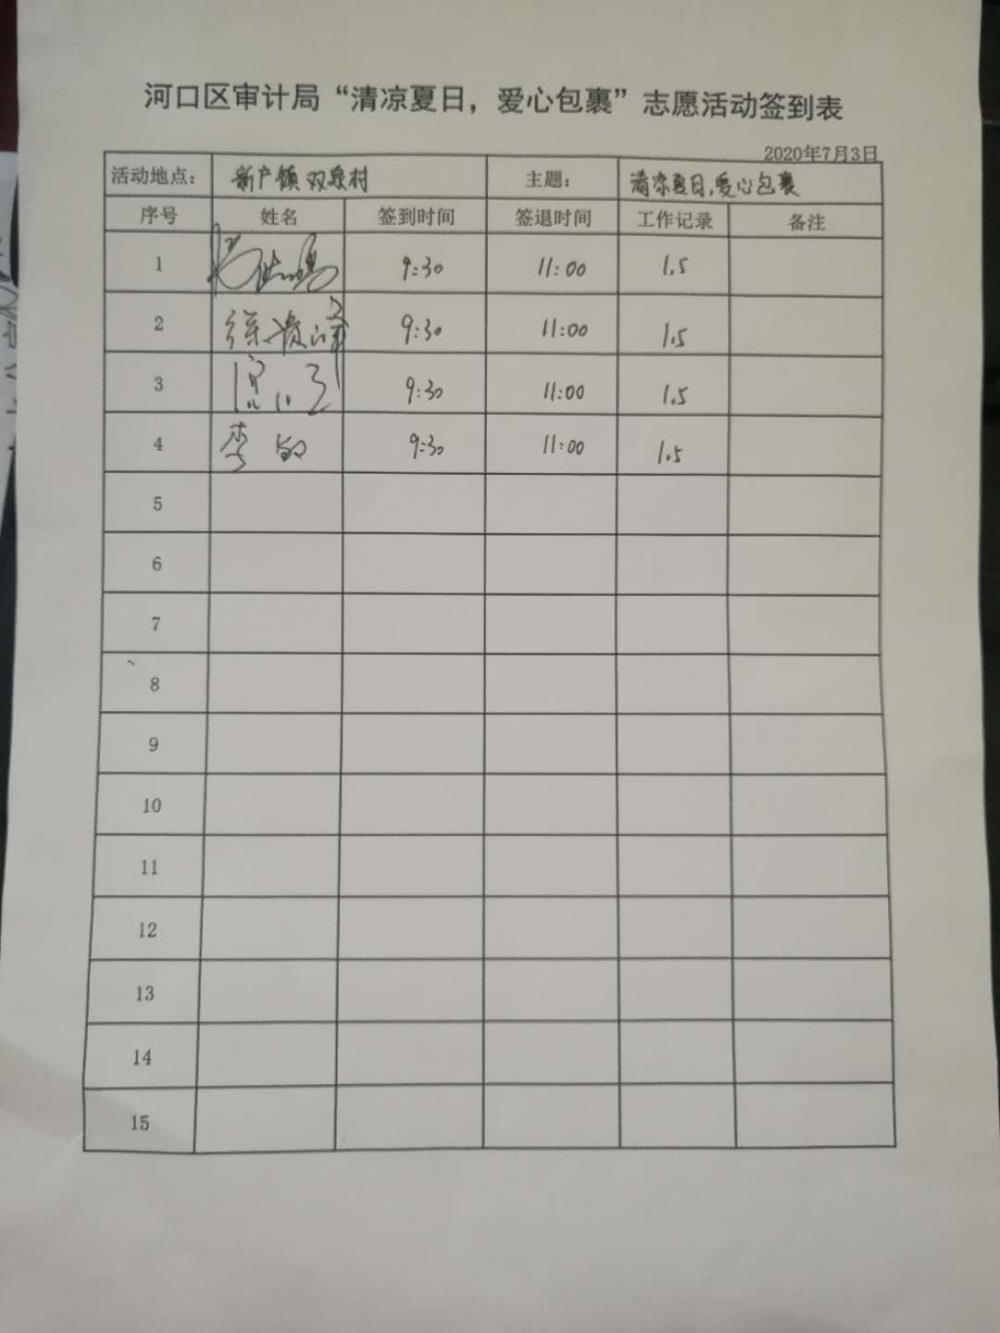 河口区审计局“清凉夏日，爱心包裹”志愿活动签到表
2020年7月3日
活动地点： 新户镇 双泉村 主题： 清凉夏日，爱心包裹
序号 姓名 签到时间 签退时间 工作记录 备注
1 9:30 11:00 1.5
2 徐 峰 9:30 11:00 1.5
3 9:30 11:00 1.5
4 李敏 9:30 11:00 1.5
5
6
7
8
9
10
11
12
13
14
15